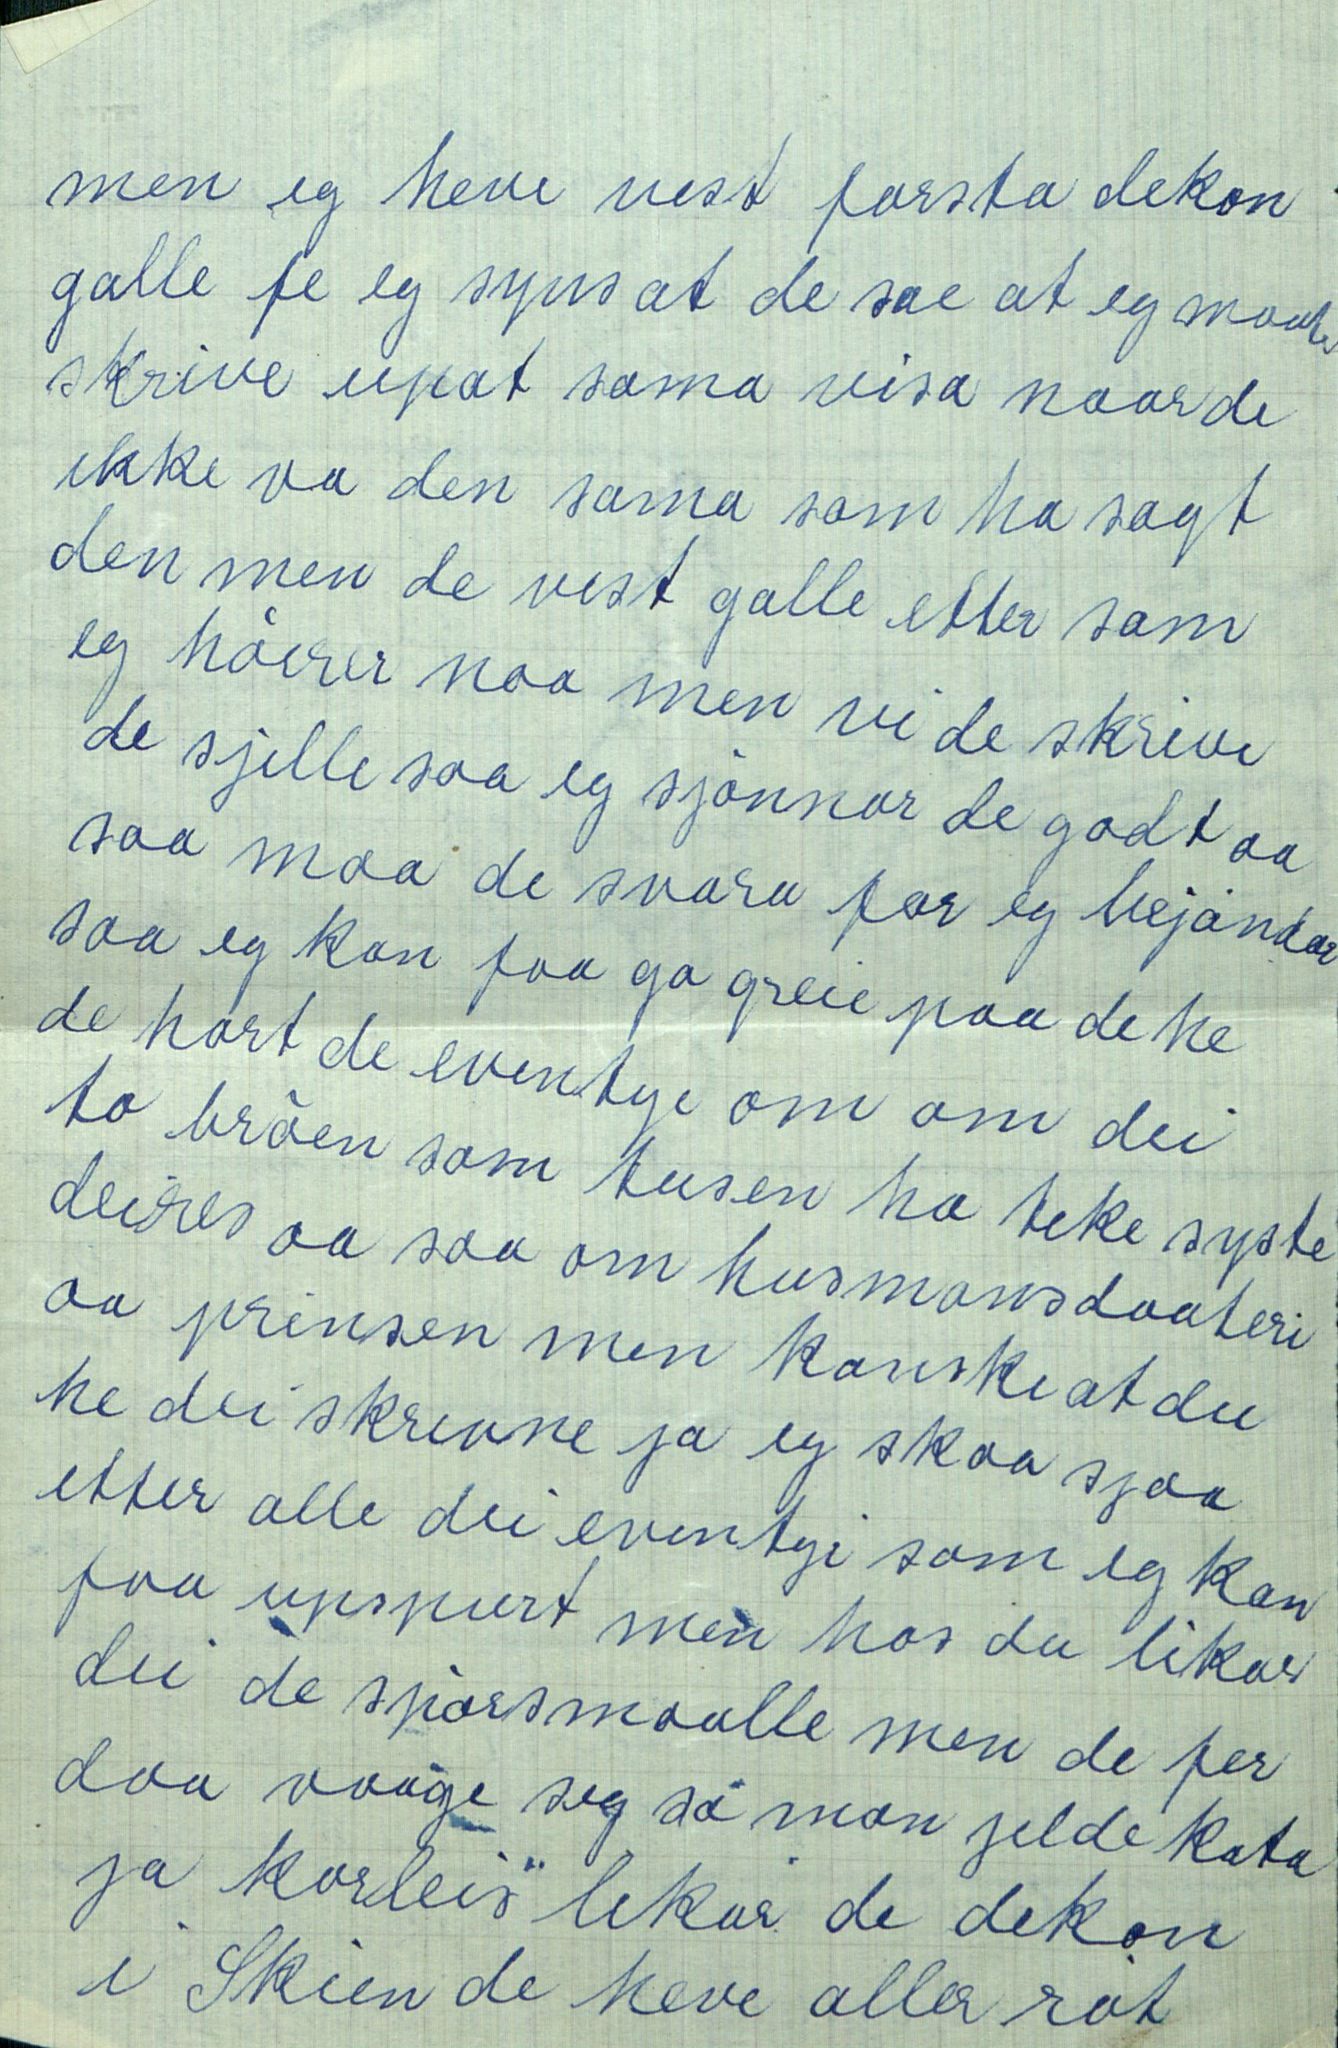 men eg heve vest forsta dekon
galle fe eg syns at de sae at eg maate
skrive upat sama visa naar de
ikke va den sama som ha sagt
den men de vest galle etter som
eg höerer naa men vi de skrive
de sjelle saa eg sjönnar de godt aa
saa maa de svara for eg bejöndar
saa eg kan faa ga greie paa de he
de hort de eventye om om dei
to bröen som tusen ha teke syste
deires aa saa om husmansdaateri
aa prinsen men kanske at du
he dei skrevne ja eg skaa sjaa
etter alle dei eventyi som eg kan
faa upspurt men hos du likar
dei de spörsmaalle men de fer
daa vaage seg så man jelde kata
ja korleis likar de dekon
i Skien de heve aller röt